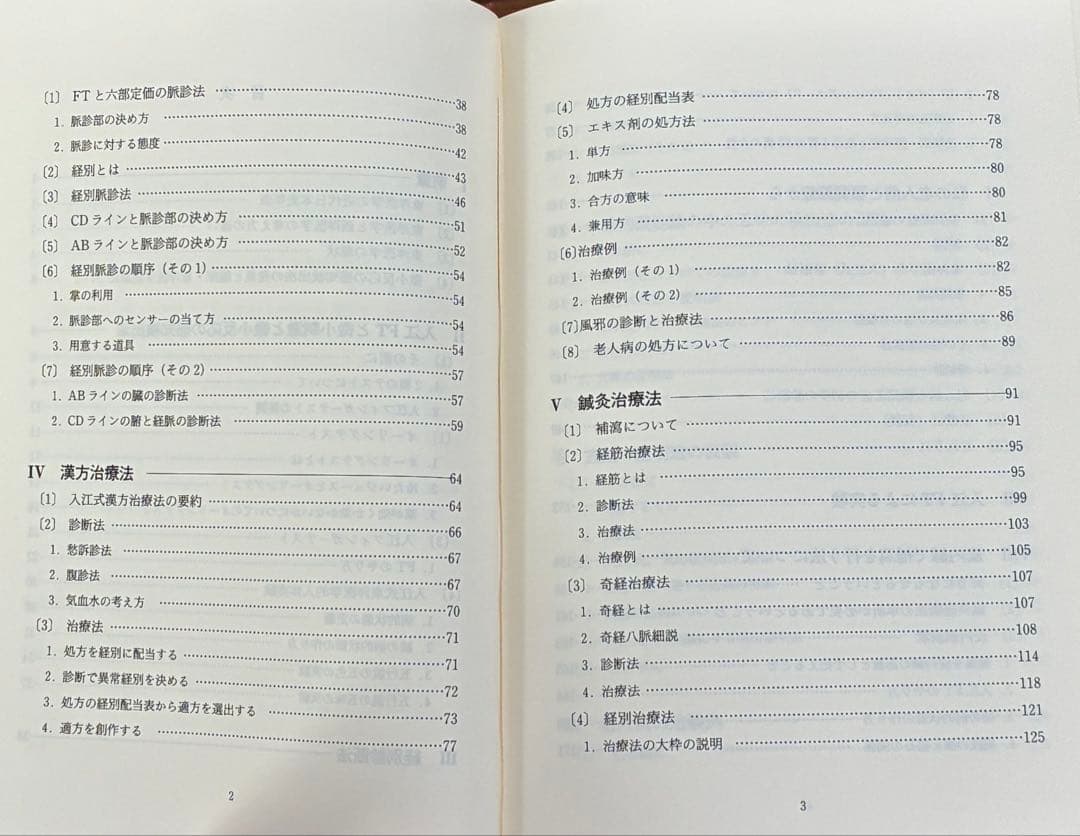 〔1〕 FTと六部定価の脈診法 ……38
1. 脈診部の決め方 ……38
2. 脈診に対する態度 ……42
〔2〕 経別とは ……43
〔3〕 経別脈診法 ……46
〔4〕 CDラインと脈診部の決め方 ……51
〔5〕 ABラインと脈診部の決め方 ……52
〔6〕 経別脈診の順序（その1） ……54
1. 掌の利用 ……54
2. 脈診部へのセンサーの当て方 ……54
3. 用意する道具 ……54
〔7〕 経別脈診の順序（その2） ……57
1. ABラインの臓の診断法 ……57
2. CDラインの腑と経脈の診断法 ……59
IV 漢方治療法 ――64
〔1〕 入江式漢方治療法の要約 ……64
〔2〕 診断法 ……66
1. 愁訴診法 ……67
2. 腹診法 ……67
3. 気血水の考え方 ……70
〔3〕 治療法 ……71
1. 処方を経別に配当する ……71
2. 診断で異常経別を決める ……72
3. 処方の経別配当表から適方を選出する ……73
4. 適方を創作する ……77
2
〔4〕 処方の経別配当表 ……78
〔5〕 エキス剤の処方法 ……78
1. 単方 ……78
2. 加味方 ……80
3. 合方の意味 ……80
4. 兼用方 ……81
〔6〕治療例 ……82
1. 治療例（その1） ……82
2. 治療例（その2） ……85
〔7〕風邪の診断と治療法 ……86
〔8〕 老人病の処方について ……89
V 鍼灸治療法 ――91
〔1〕 補瀉について ……91
〔2〕 経筋治療法 ……95
1. 経筋とは ……95
2. 診断法 ……99
3. 治療法 ……103
4. 治療例 ……105
〔3〕 奇経治療法 ……107
1. 奇経とは ……107
2. 奇経八脈細説 ……108
3. 診断法 ……114
4. 治療法 ……118
〔4〕 経別治療法 ……121
1. 治療法の大枠の説明 ……125
3